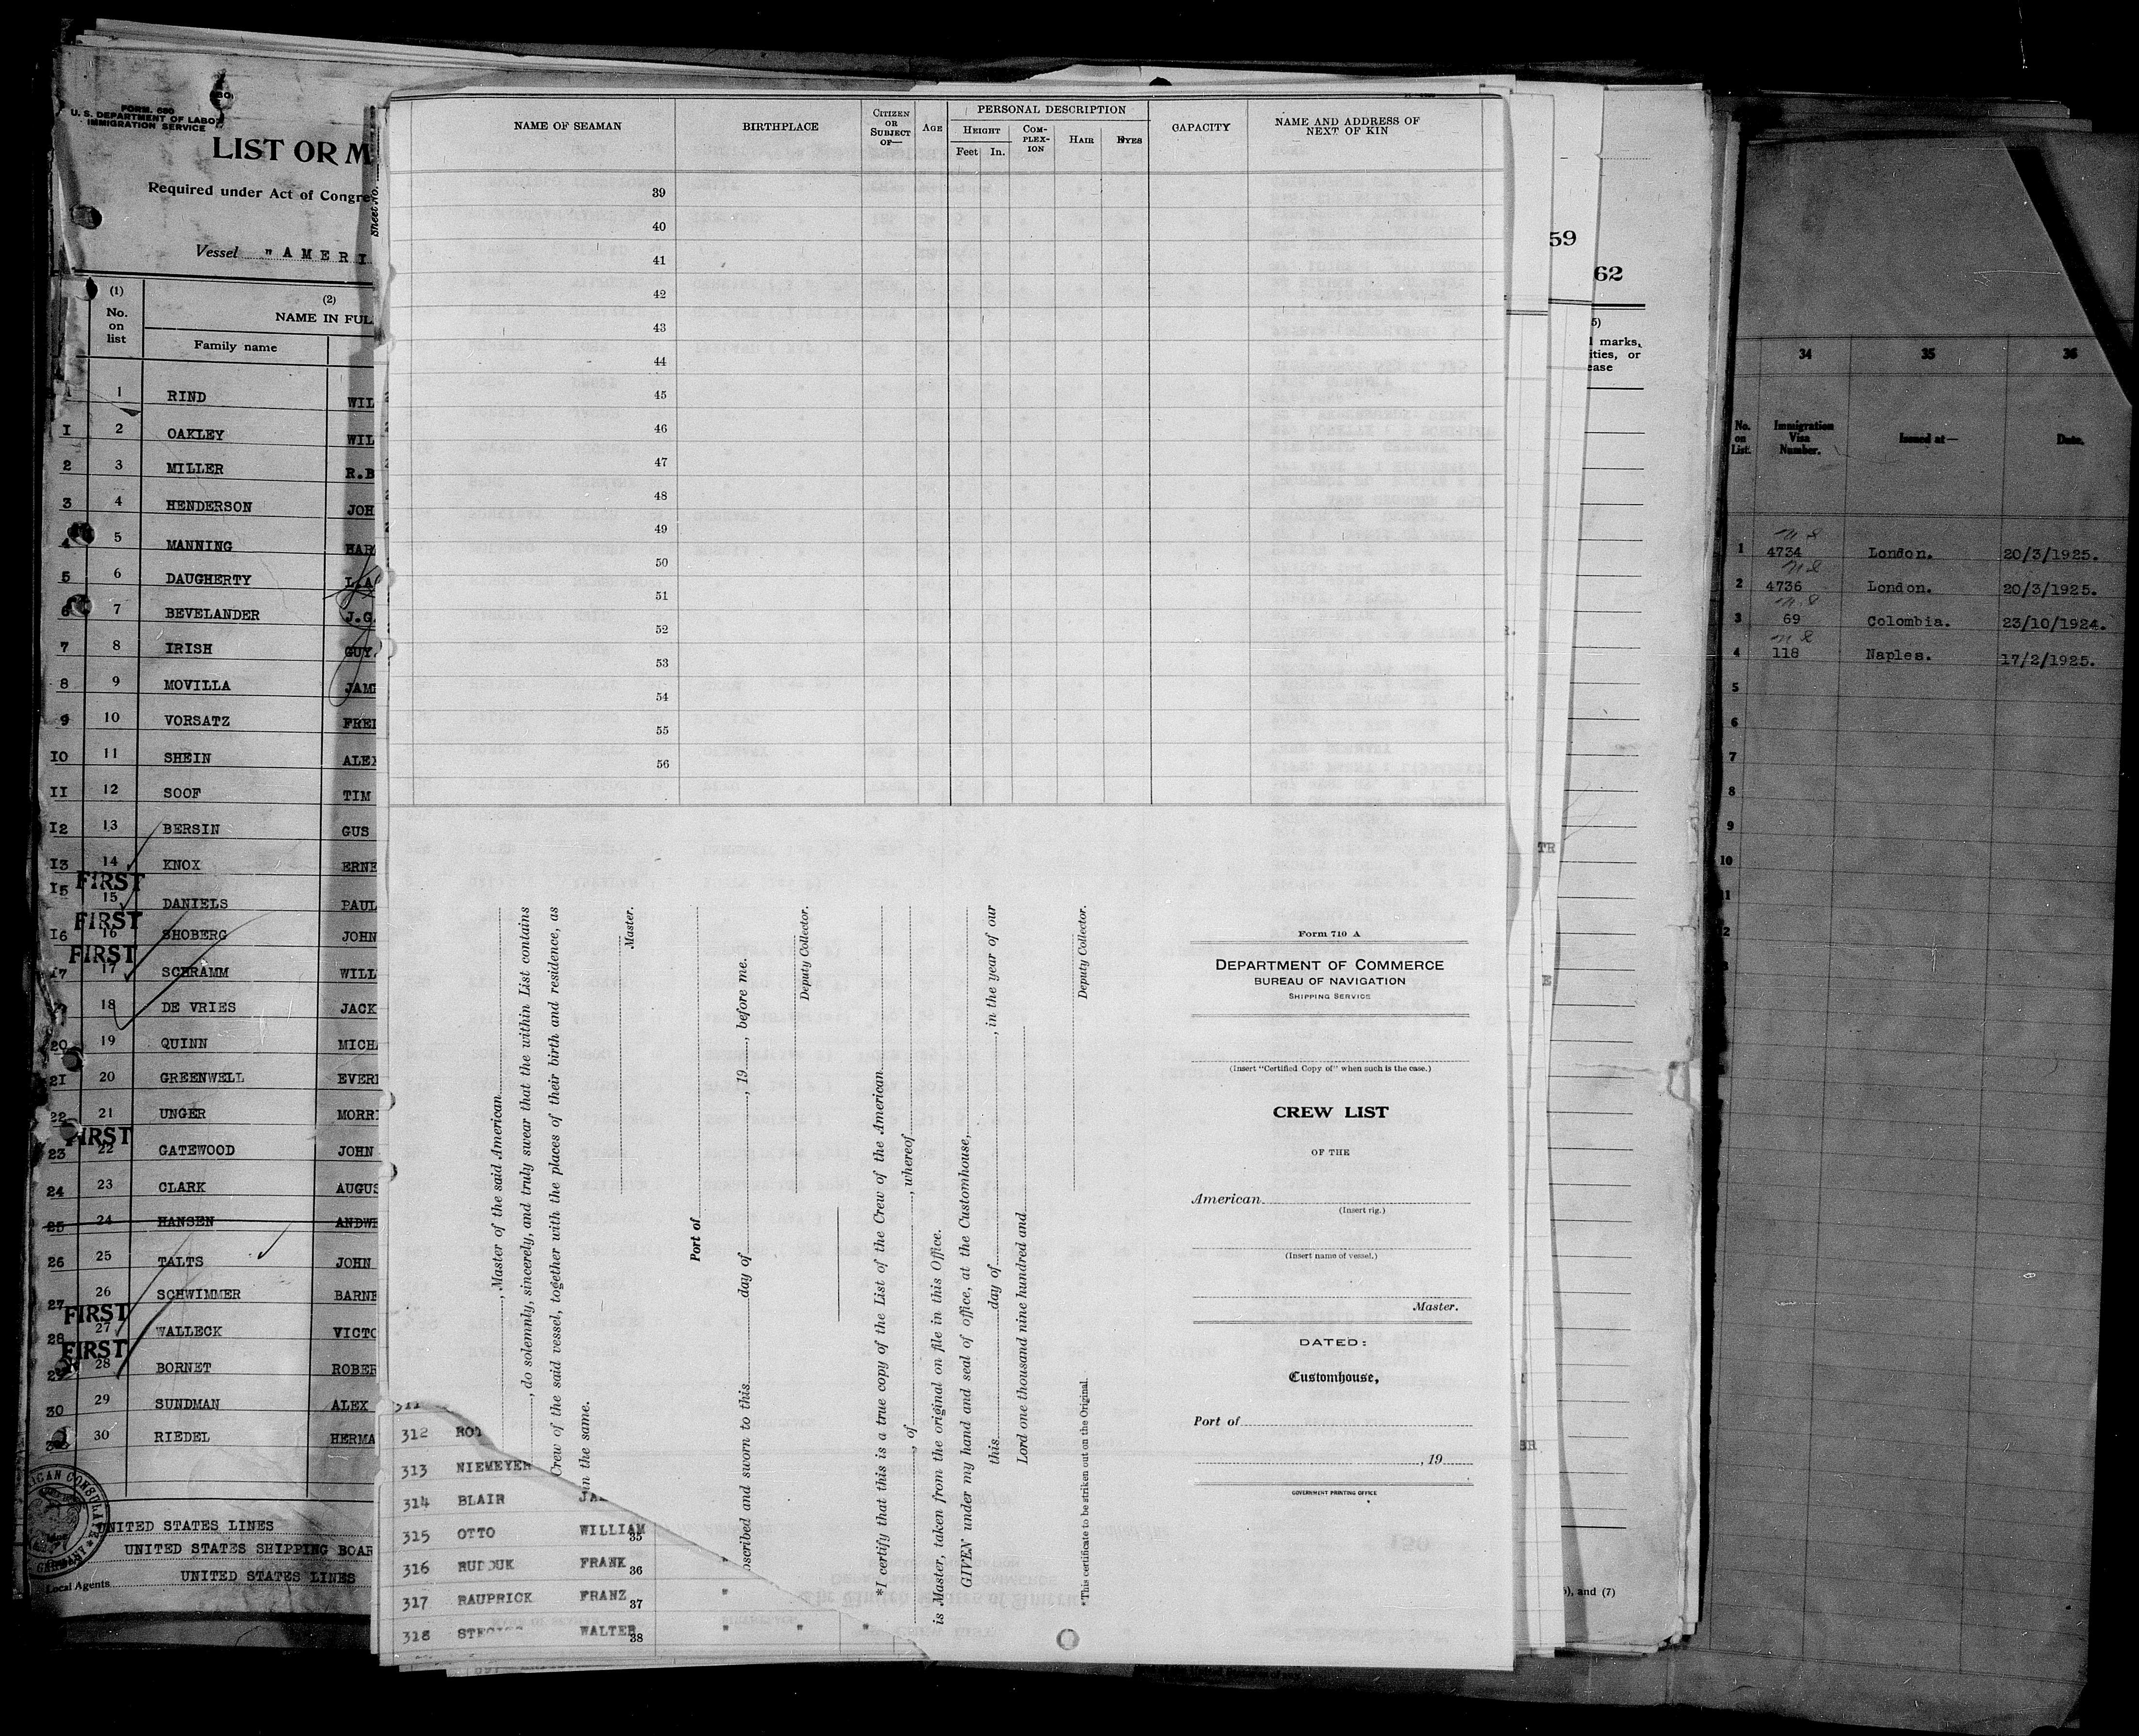 FORM. 680
U. S. DEPARTMENT OF LABOR
IMMIGRATION SERVICE
LIST OR M
Required under Act of Congre
Vessel "AMERI
(1)
No.
on
list
(2)
NAME IN FUL
Family name
1 1 RIND WIL
I 2 OAKLEY WIL
2 3 MILLER R.B
3 4 HENDERSON JOH
4 5 MANNING HAR
5 6 DAUGHERTY L.A
6 7 BEVELANDER J.G.
7 8 IRISH GUY.
8 9 MOVILLA JAM
9 10 VORSATZ FRE
IO 11 SHEIN ALEX
II 12 SOOF TIM
I2 13 BERSIN GUS
I3 14 KNOX ERNE
FIRST
I5 15 DANIELS PAUL
FIRST
I6 16 SHOBERG JOHN
FIRST
I7 17 SCHRAMM WILL
18 DE VRIES JACK
20 19 QUINN MICHA
21 20 GREENWELL EVER
22 21 UNGER MORR
FIRST
23 22 GATEWOOD JOHN
24 23 CLARK AUGUS
25 24 HANSEN ANDW
26 25 TALTS JOHN
27 26 SCHWIMMER BARNE
FIRST
28 27 WALLECK VICTO
FIRST
29 28 BORNET ROBER
30 29 SUNDMAN ALEX
30 RIEDEL HERMA
ICAN CONSULATE
GERMANY
UNITED STATES LINES
UNITED STATES SHIPPING BOAR
Local Agents UNITED STATES LINES
Sheet No.
NAME OF SEAMAN
BIRTHPLACE
CITIZEN
OR
SUBJECT
OF—
AGE
PERSONAL DESCRIPTION
HEIGHT
Feet In.
COM-
PLEX-
ION
HAIR
EYES
CAPACITY
NAME AND ADDRESS OF
NEXT OF KIN
39
40
41
42
43
44
45
46
47
48
49
50
51
52
53
54
55
56
, Master of the said American
, do solemnly, sincerely, and truly swear that the within List contains
Crew of the said vessel, together with the places of their birth and residence, as
n the same.
Master.
Port of
scribed and sworn to this day of , 19 , before me.
Deputy Collector.
*I certify that this is a true copy of the List of the Crew of the American
, of , whereof
is Master, taken from the original on file in this Office.
GIVEN under my hand and seal of office, at the Customhouse,
this day of , in the year of our
Lord one thousand nine hundred and
Deputy Collector.
*This certificate to be striken out on the Original.
Form 710 A
DEPARTMENT OF COMMERCE
BUREAU OF NAVIGATION
SHIPPING SERVICE
(Insert "Certified Copy of" when such is the case.)
CREW LIST
OF THE
American
(Insert rig.)
(Insert name of vessel.)
Master.
DATED:
Customhouse,
Port of
, 19
GOVERNMENT PRINTING OFFICE
311
312 RO
313 NIEMEYER
314 BLAIR JA
315 OTTO WILLIAM 35
316 FRANK 36
317 RAUPRICK FRANZ 37
318 WALTER 38
59
62
5)
l marks,
ities, or
ease
TR
E
ER
), and (7)
34
35
36
No.
on
List.
Immigration
Visa
Number.
Issued at—
Date.
1 4734 London. 20/3/1925.
2 4736 London. 20/3/1925.
3 69 Colombia. 23/10/1924.
4 118 Naples. 17/2/1925.
5
6
7
8
9
10
1
2
3